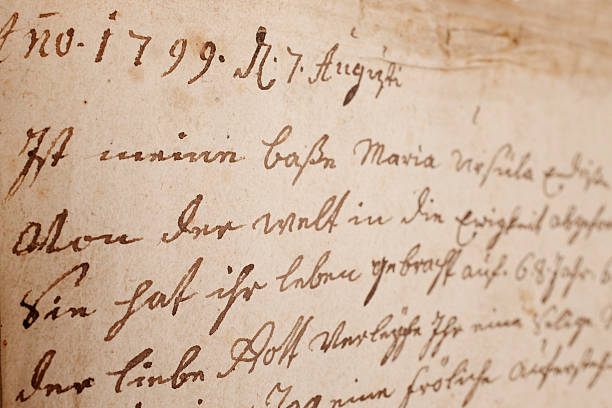 Año. 1799. D. 7. Augusti
Ist meine baße Maria Ursula
Von der welt in die Ewigkeit
Sie hat ihr leben gebracht auf. 68 Jahr.
der liebe Gott Verleyhe Ihr eine Selige
eine fröliche